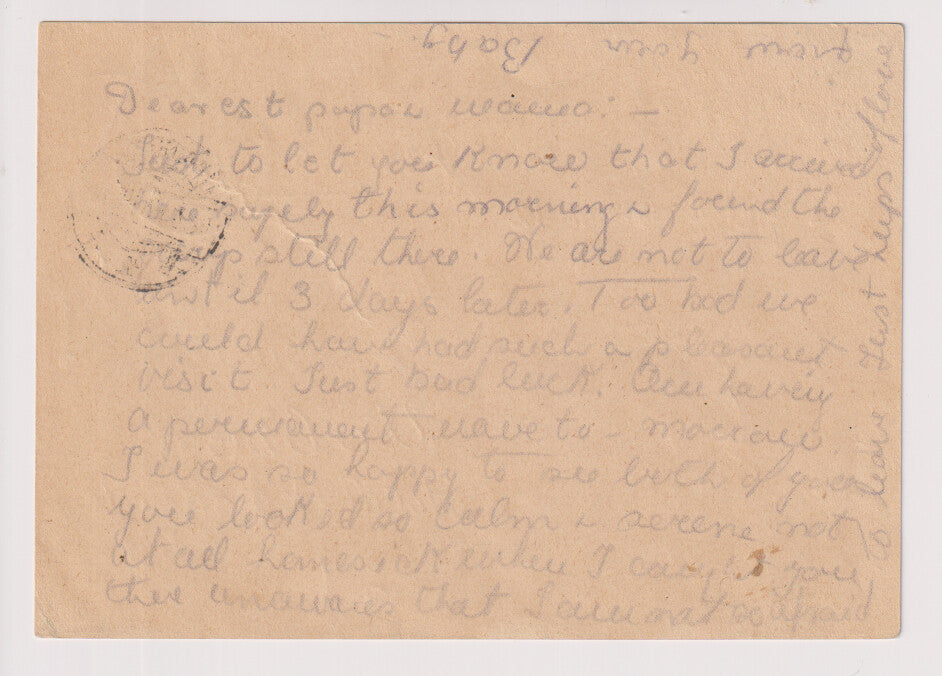 Dearest papa & mama: —
Just to let you know that I arrived
here safely this morning & found the
still there. We are not to leave
until 3 days later. Too bad we
could have had such a pleasant
visit. Just bad luck. Am having
a permanent wave to-morrow
I was so happy to see both of you
you looked so calm & serene not
at all homesick when I caught you
there unawares that I am not afraid
to leave Just heaps of love
from your Baby.